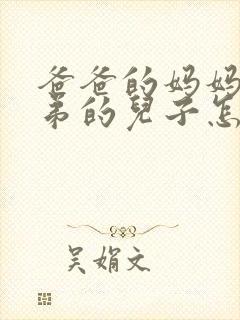 爸爸的妈妈
弟的儿子怎
吴娟文